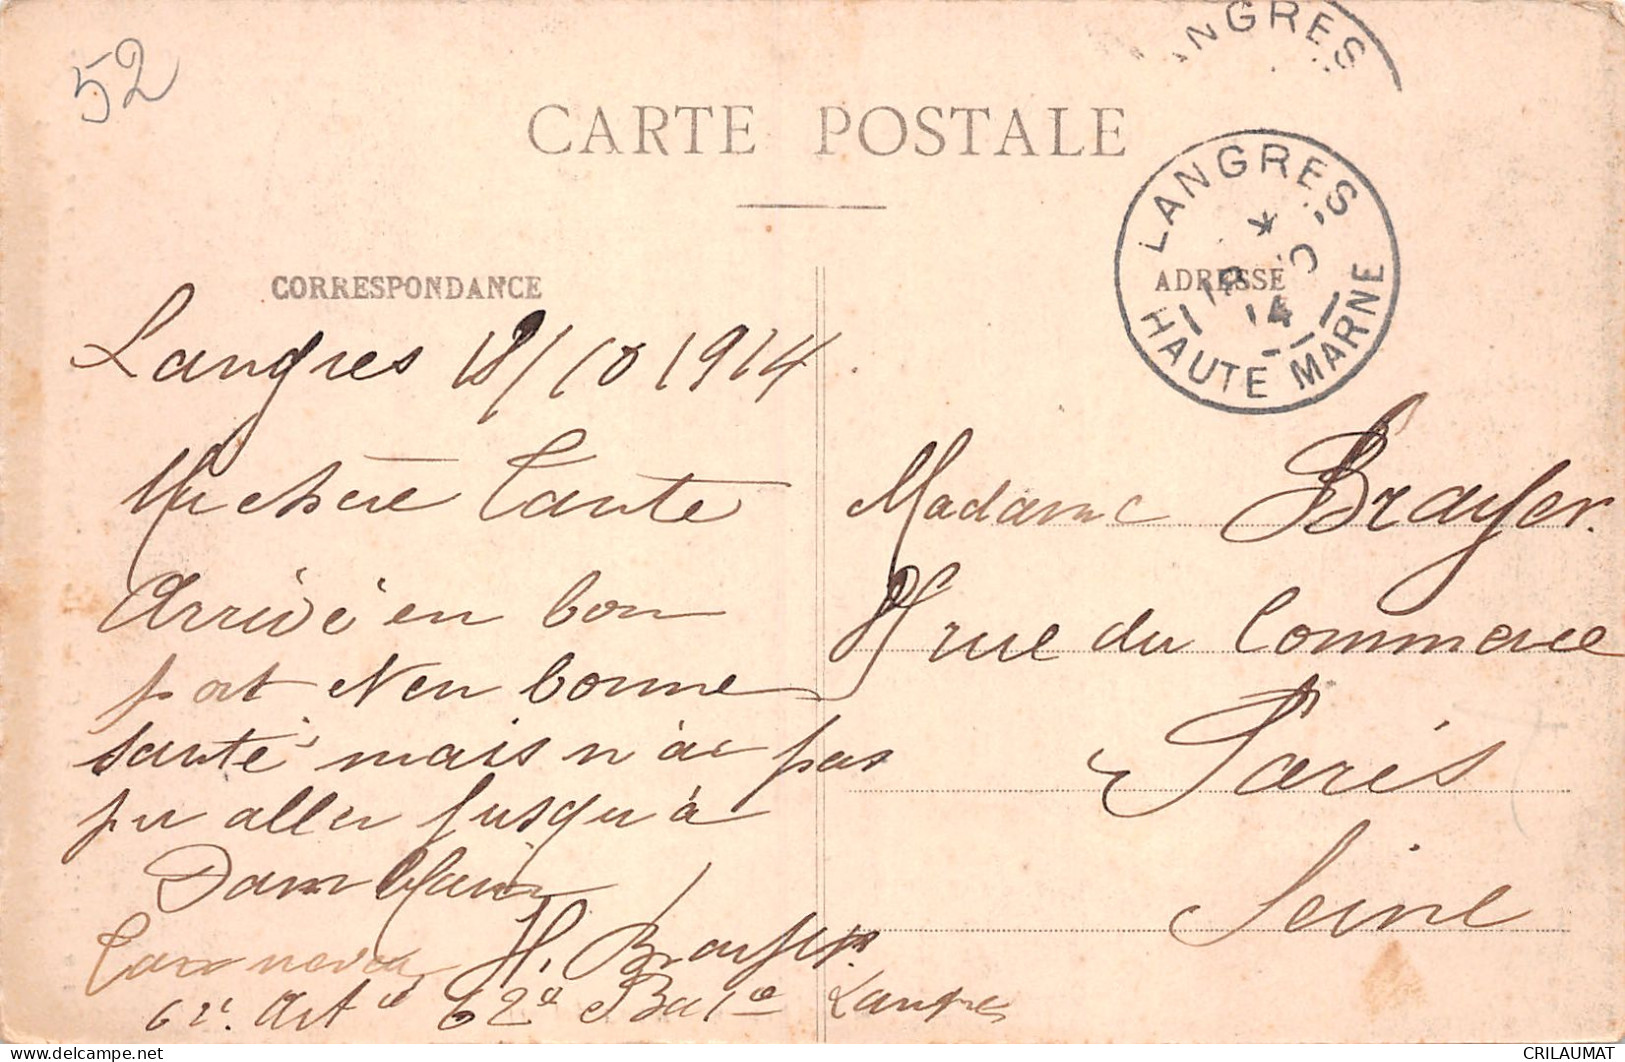 52
CARTE POSTALE
LANGRES
LANGRES
* 18 10 14
HAUTE MARNE
CORRESPONDANCE
ADRESSE
Langres 18/10 1914
Ma chère Tante
Arrivé en bon
port et en bonne
santé mais n'ai pas
pu aller jusqu'à
Dam
H. Brayer.
6e. Artie 62e Bate Langres
Madame Brayer.
rue du Commerce
Paris
Seine
delcampe.net
CRILAUMAT